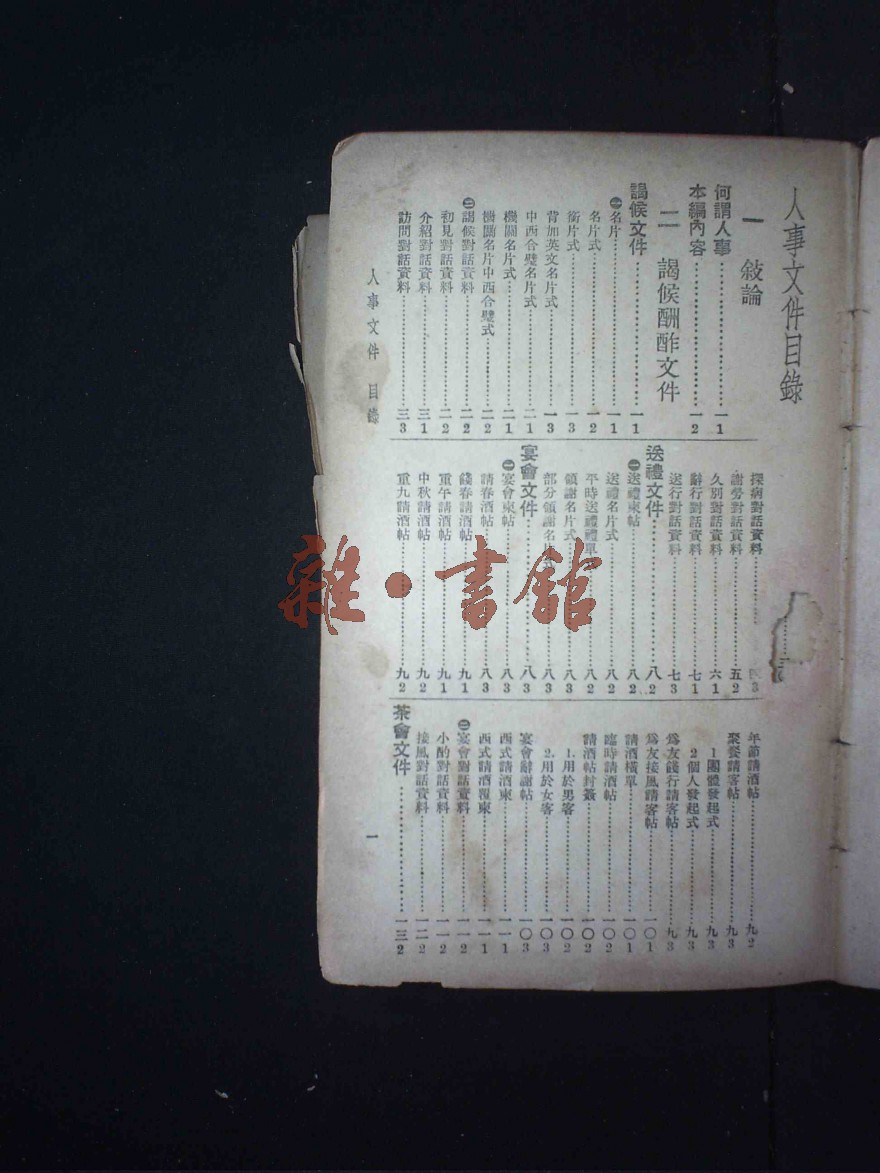 人事文件目錄
一 敍論
何謂人事………一1
本編內容………一2
二 謁候酬酢文件
謁候文件………一1
㊀名片………一1
名片式………一2
銜片式………一3
背加英文名片式………一3
中西合璧名片式………二1
機關名片式………二1
機關名片中西合璧式………二2
㊁謁候對話資料………二2
初見對話資料………二2
介紹對話資料………三1
訪問對話資料………三3
探病對話資料………四3
謝勞對話資料………五2
久別對話資料………六1
辭行對話資料………七1
送行對話資料………七3
送禮文件………八2
㊀送禮柬帖………八2
送禮名片式………八2
平時送禮禮單………八2
領謝名片式………八3
部分領謝名片式………八3
宴會文件………八3
㊀宴會柬帖………八3
請春酒帖………八3
餞春請酒帖………九1
重午請酒帖………九1
中秋請酒帖………九2
重九請酒帖………九2
年節請酒帖………九2
聚餐請客帖………九3
1團體發起式………九3
2個人發起式………九3
爲友餞行請客帖………九3
爲友接風請客帖………一〇1
請酒橫單………一〇1
臨時請酒帖………一〇2
請酒帖封簽………一〇2
1.用於男客………一〇2
2.用於女客………一〇3
宴會辭謝帖………一〇3
西式請酒柬………一一1
西式請酒覆柬………一一1
㊁宴會對話資料………一一2
小酌對話資料………一一2
接風對話資料………一二2
茶會文件………一三2
人事文件 目錄
一
雜·書館